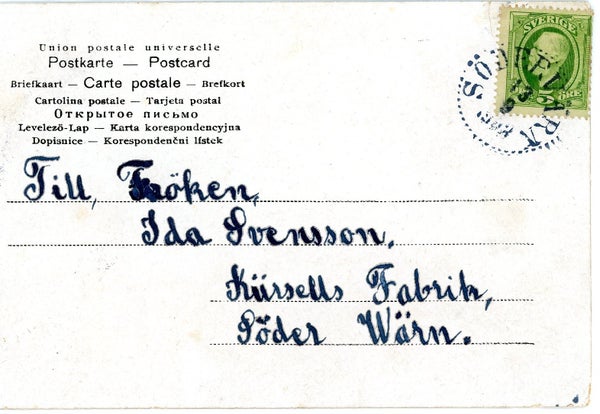 Union postale universelle
Postkarte — Postcard
Briefkaart — Carte postale — Brefkort
Cartolina postale — Tarjeta postal
Открытое письмо
Levelező-Lap — Karta korespondencyjna
Dopisnice — Korespondenční lístek
SVERIGE
5 ÖRE
Till, Fröken,
Ida Svensson.
Kürsells Fabrik,
Söder Wärn.